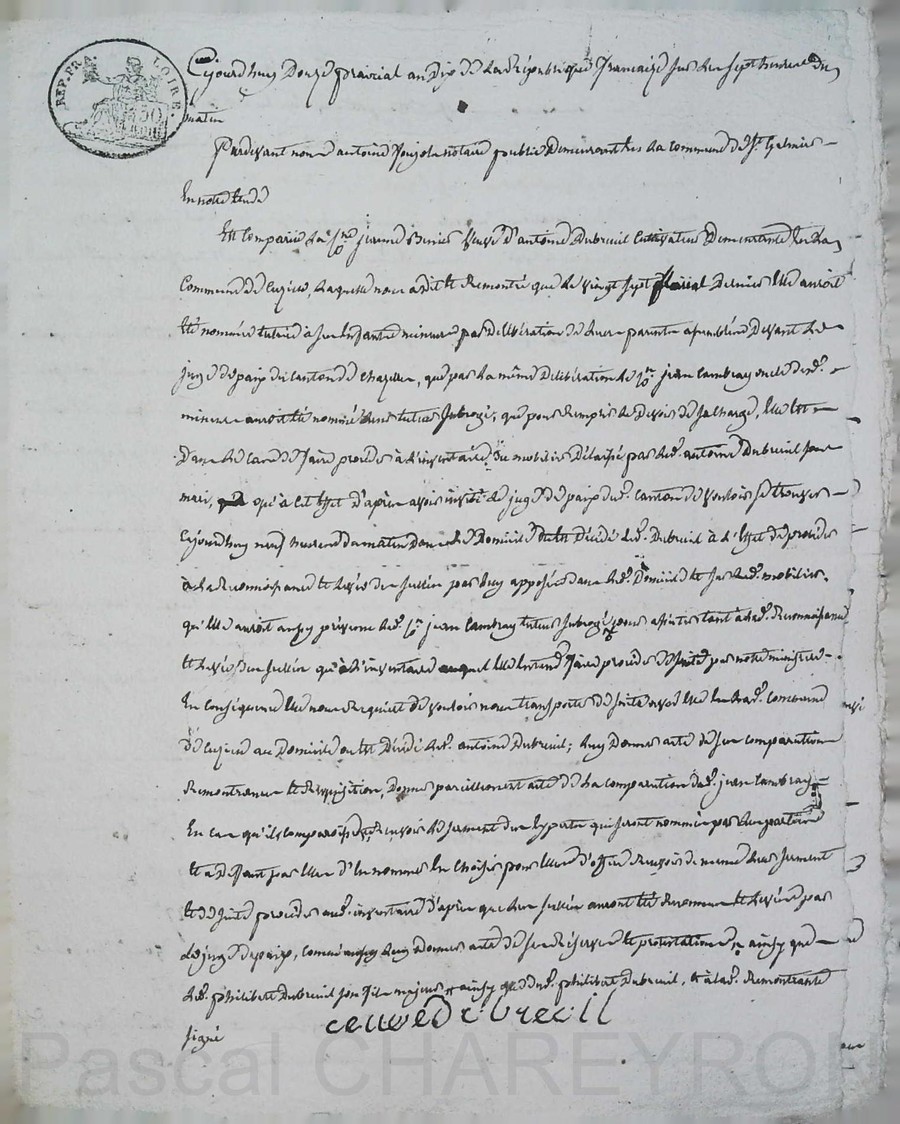 REP. FRA. LOIRE.
50
Cejourdhuy Douze prairial an Dix de la république française sur les sept heures du
matin
Pardevant nous antoine notaire public Demeurant en la Commune de St. Galmier
En notre Etude
Est Comparue la jeanne veuve d'antoine Dubreuil Cultivateur Demeurante en la
Commune de Cuzieu, laquelle nous a dit et Remontré que le vingt sept floréal Dernier Elle auroit
été nommée tutrice à ses Enfants mineurs par Délibération de leurs parents assemblés Devant le
juge de paix du Canton de Chazelles, que par la même Délibération le Sr. jean Cambray oncle desd.
mineurs auroit été nommé leur tuteur subrogé, que pour Remplir le Devoir de sa charge, Elle Est
Dans le cas de faire procéder à l'inventaire du mobilier Délaissé par led. antoine Dubreuil son
mari, qu'à cet Effet d'après avoir invité le juge de paix dud. Canton de vouloir se trouver
Cejourdhuy neuf heures du matin Dans le Domicile où Est Décédé led. Dubreuil à l'Effet de procéder
à la Reconnoissance et levée des scellés par luy apposés dans led. Domicile et sur led. mobilier.
qu'Elle auroit aussy prévenu led. Sr. jean Cambray tuteur subrogé pour assister tant à lad. Reconnoissance
et levée des scellés qu'à l'inventaire auquel Elle Entend faire procéder de suite par notre ministère
En Conséquence Elle nous Requiert de vouloir nous transporter de suite avec Elle En lad. Commune
de Cuzieu au Domicile où Est Décédé led. antoine Dubreuil; luy Donner acte de sa Comparution
Remontrance et Réquisition, Donner pareillement acte de la Comparution dud. jean Cambray
En cas qu'ils comparoissent, Recevoir le serment des Experts qui seront nommés par les parties
et à Défaut par Elles d'En nommer En choisir pour Elles d'office Recevoir de même leur serment
et de suite procéder aud. inventaire d'après que les scellés auront été Reconnus et levés par
le juge de paix, comme aussy luy Donner acte de ses Réserves et protestations, ainsy que
led. philibert Dubreuil son fils majeur ainsy que led. philibert Dubreuil, et à lad. Remontrante
signé
ceuve Dubreuil
Pascal CHAREYRON